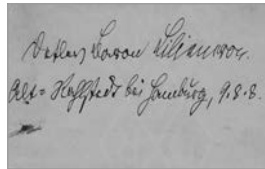 Detlev Baron Liliencron.
Alt=Rahlstedt bei Hamburg, 9.8.8.